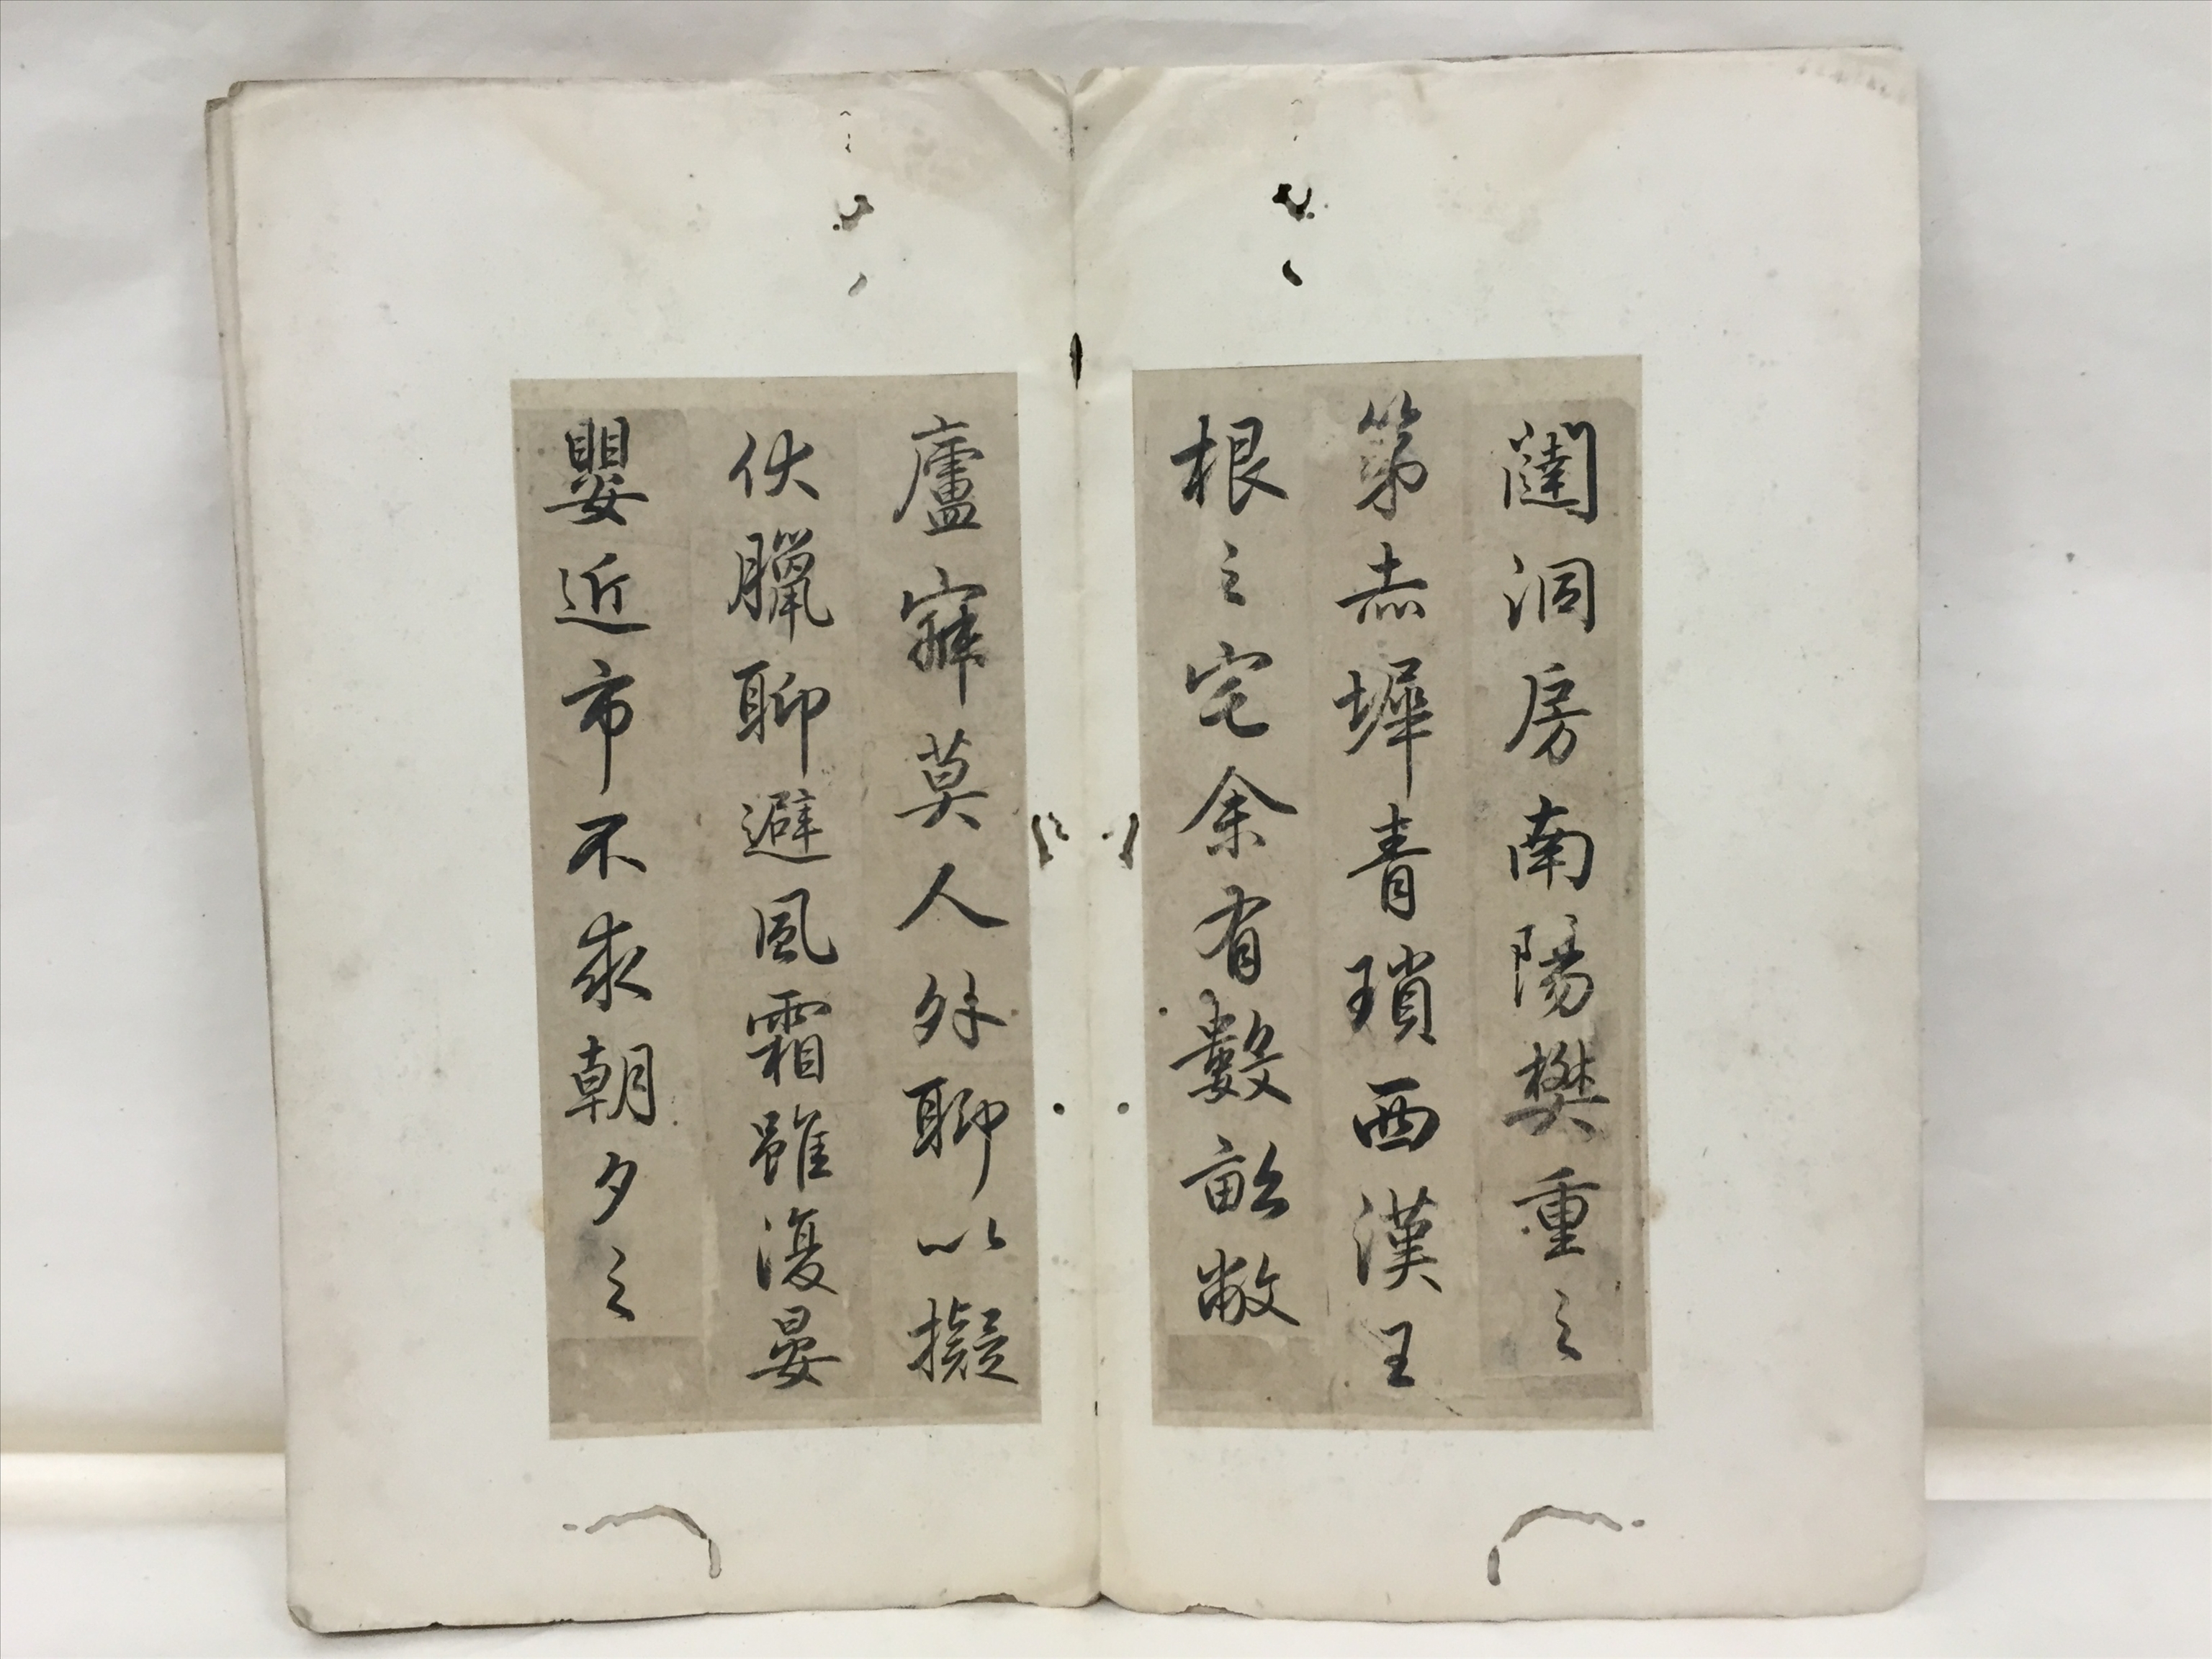 闥洞房南陽樊重之
第赤墀青瑣西漢王
根之宅余有數畝敝
廬寂莫人外聊以擬
伏臘聊避風霜雖復晏
嬰近市不求朝夕之